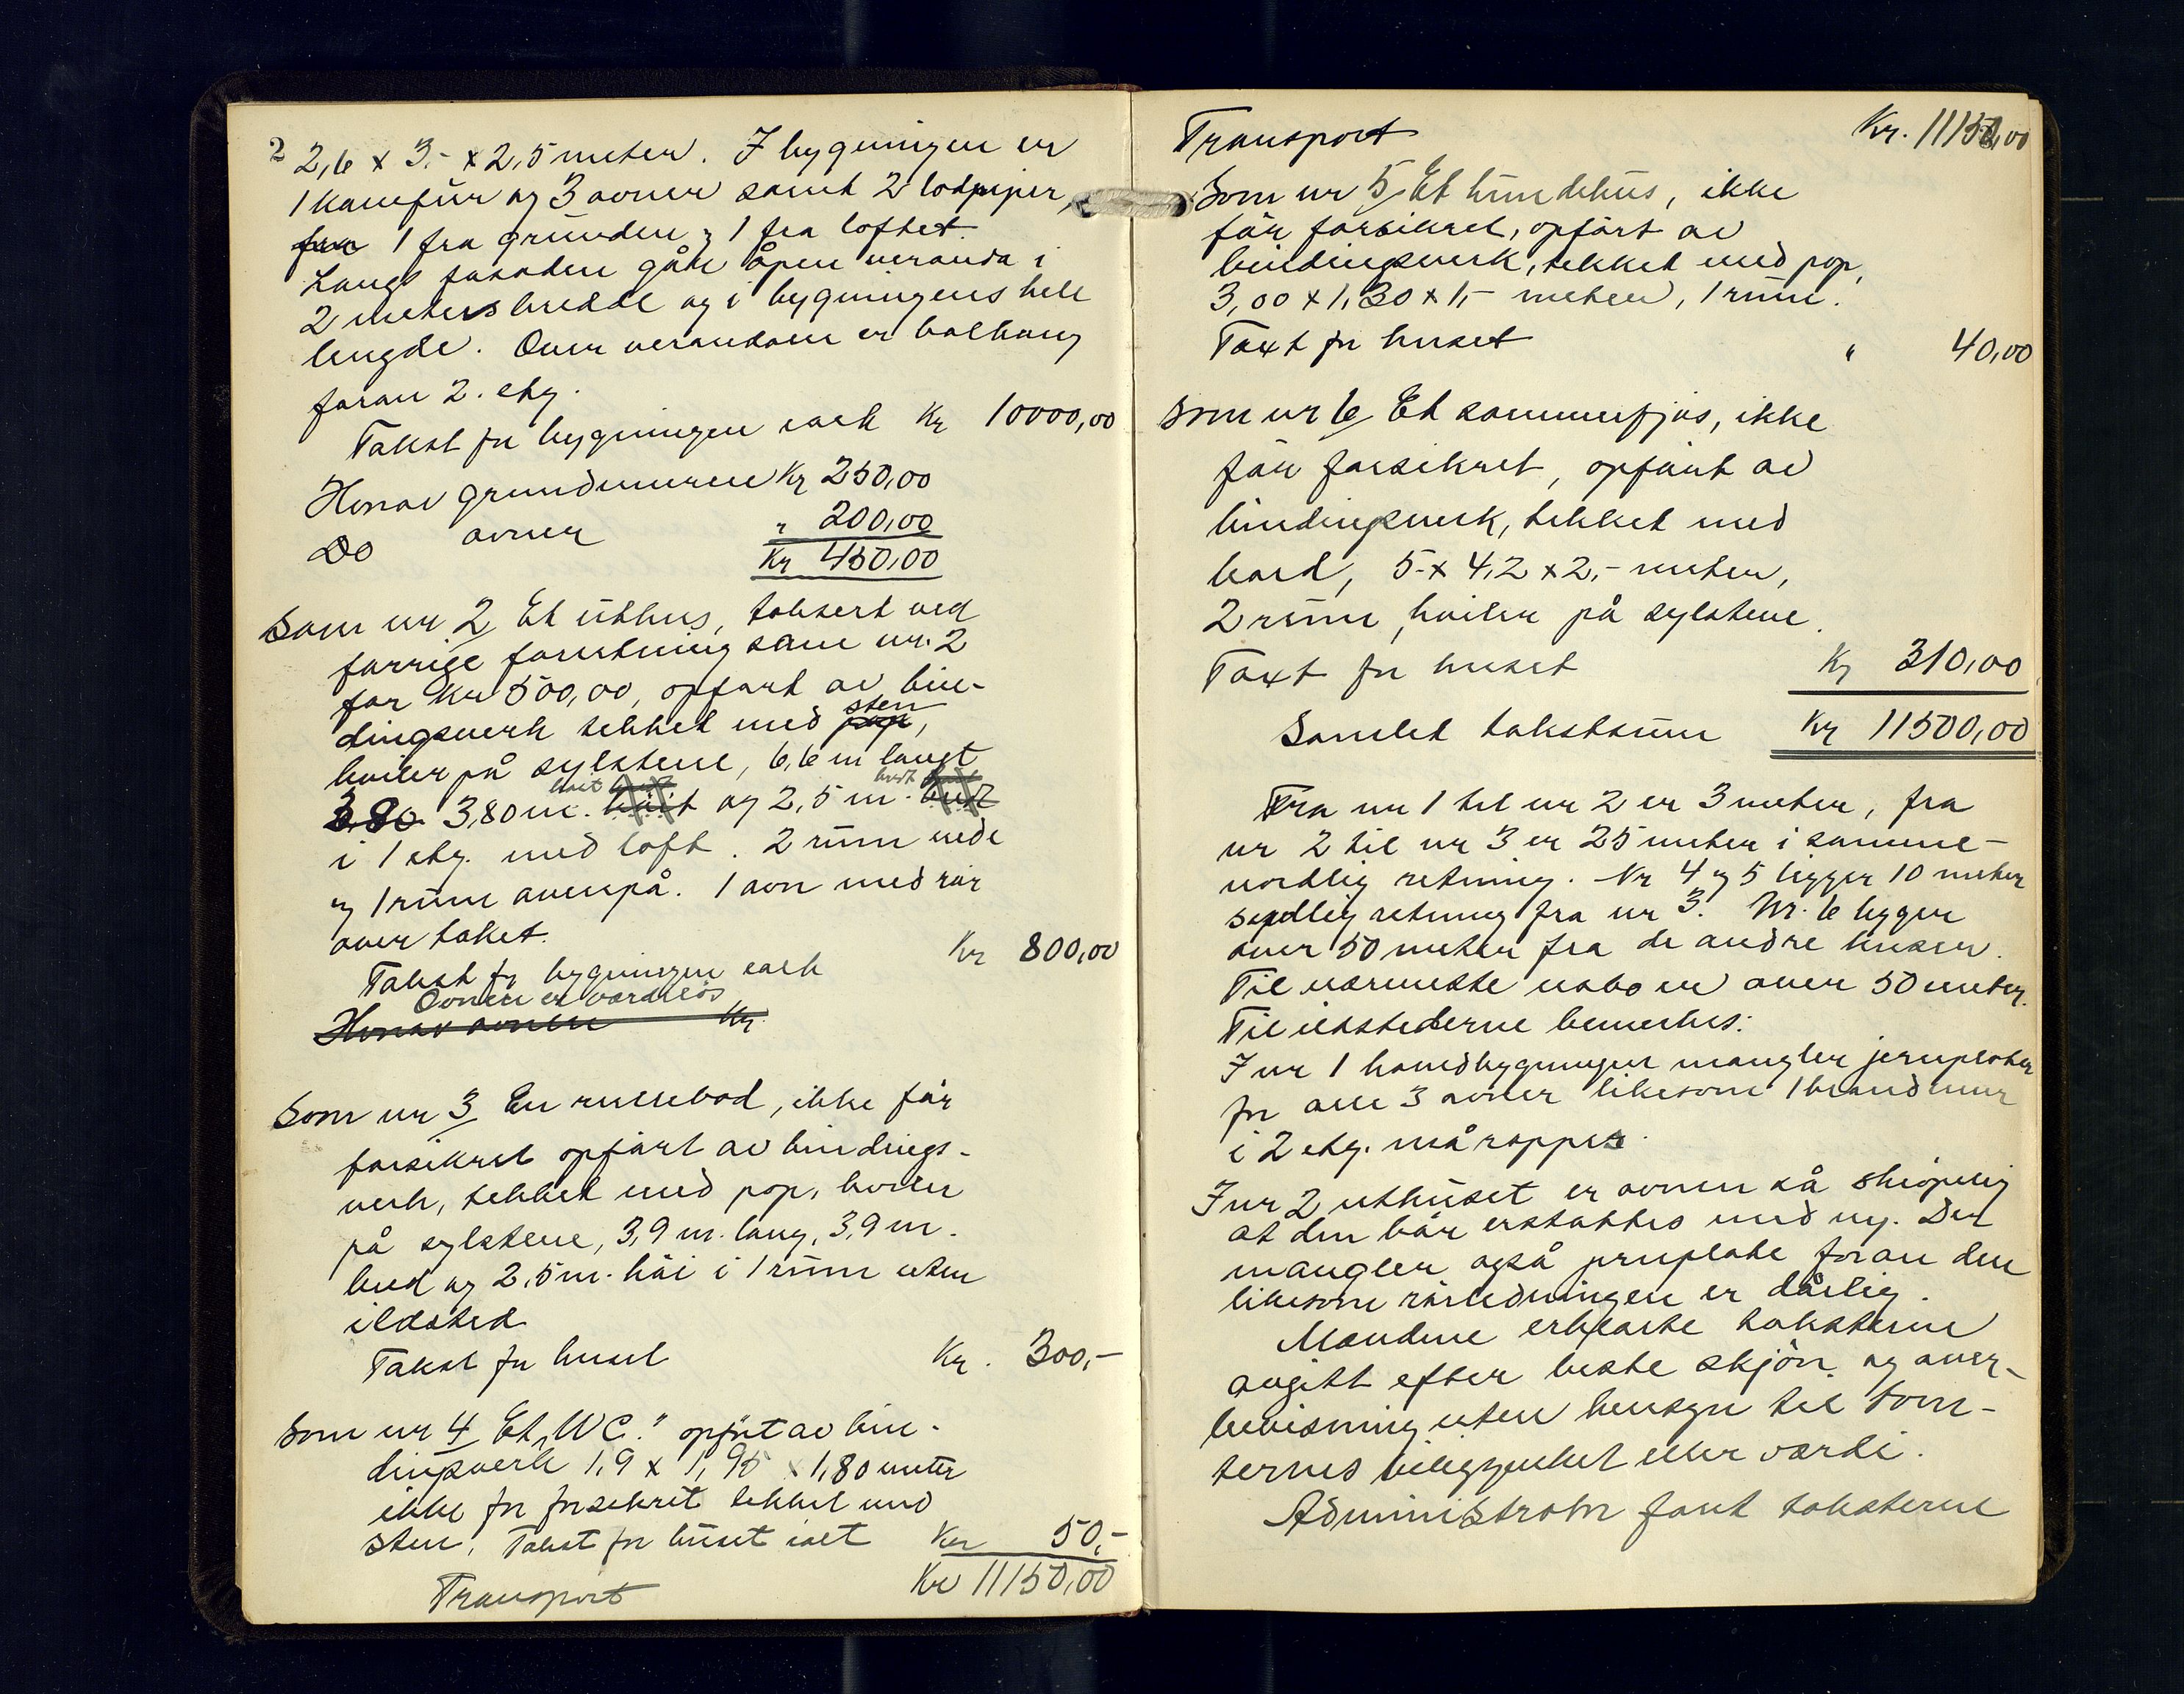 2
2,6 x 3.- x 2,5 meter. I bygningen er
1 komfür og 3 avner samt 2 lodpiper,
fra 1 fra grunden og 1 fra loftet.
Langs fasaden går åpen veranda i
2 meters bredde og i bygningens hele
lengde. Over verandaen er balkong
foran 2. etg.
Takst for bygningen ialt Kr 10000,00
Herav grundmuren Kr 250,00
Do ovner " 200,00
Kr 450,00
Som nr 2 Et üthus, taksert ved
forrige forretning som nr. 2
for Kr 500,00, opfört av bin-
dingsverk tekket med pap, sten
hviler på sylstene, 6,6 m langt
3,80 3,80 m. bredt og 2,5 m. höit
i 1 etg. med loft. 2 rüm nede
og 1 rüm ovenpå. 1 ovn med rör
over taket.
Takst for bygningen ialt Kr 800,00
Ovnen er værdilös
Herav ovnen Kr.
Som nr 3 En rullebod, ikke för
forsikret opfört av bindings-
verk, tekket med pap, hviler
på sylstene, 3,9 m. lang, 3,9 m.
bred og 2,5 m. höi i 1 rüm uten
ildsted
Takst for huset Kr. 300,-
Som nr 4 Et "WC." opfört av bin-
dingsverk 1,9 x 1,95 x 1,80 meter
ikke för forsikret tekket med
sten. Takst for hüset ialt Kr 50,-
Transport Kr 11150,00
Transport Kr. 11150,00
Som nr 5 Et hündehüs, ikke
för forsikret, opfört av
bindingsverk, tekket med pap,
3,00 x 1,30 x 1,- meter, 1 rüm.
Taxt for huset " 40,00
Som nr 6 Et sommerfjös, ikke
för forsikret, opfört av
bindingsverk, tekket med
bord, 5.- x 4,2 x 2,- meter,
2 rüm, hviler på sylstene.
Taxt for huset Kr 310,00
Samlet takstsüm Kr 11500,00
Fra nr 1 til nr 2 er 3 meter, fra
nr 2 til nr 3 er 25 meter i samme-
nordlig retning. Nr 4 og 5 ligger 10 meter
sydlig retning fra nr 3. Nr. 6 ligger
over 50 meter fra de andre husene.
Til nærmeste nabo er over 50 meter.
Til ildstederne bemerkes:
I nr 1 hovedbygningen mangler jernplater
for alle 3 ovner likesom 1 brandmur
i 2 etg. må rappes.
I nr 2 uthüset er ovnen så skröpelig
at den bör erstattes med ny. Der
mangler også jernplate foran den
likesom rörledningen er dårlig.
Mændene erklærte taksterne
avgitt efter beste skjön og over-
bevisning uten hensyn til tom-
ternes beliggenhet eller værdi.
Administrator fant taksterne